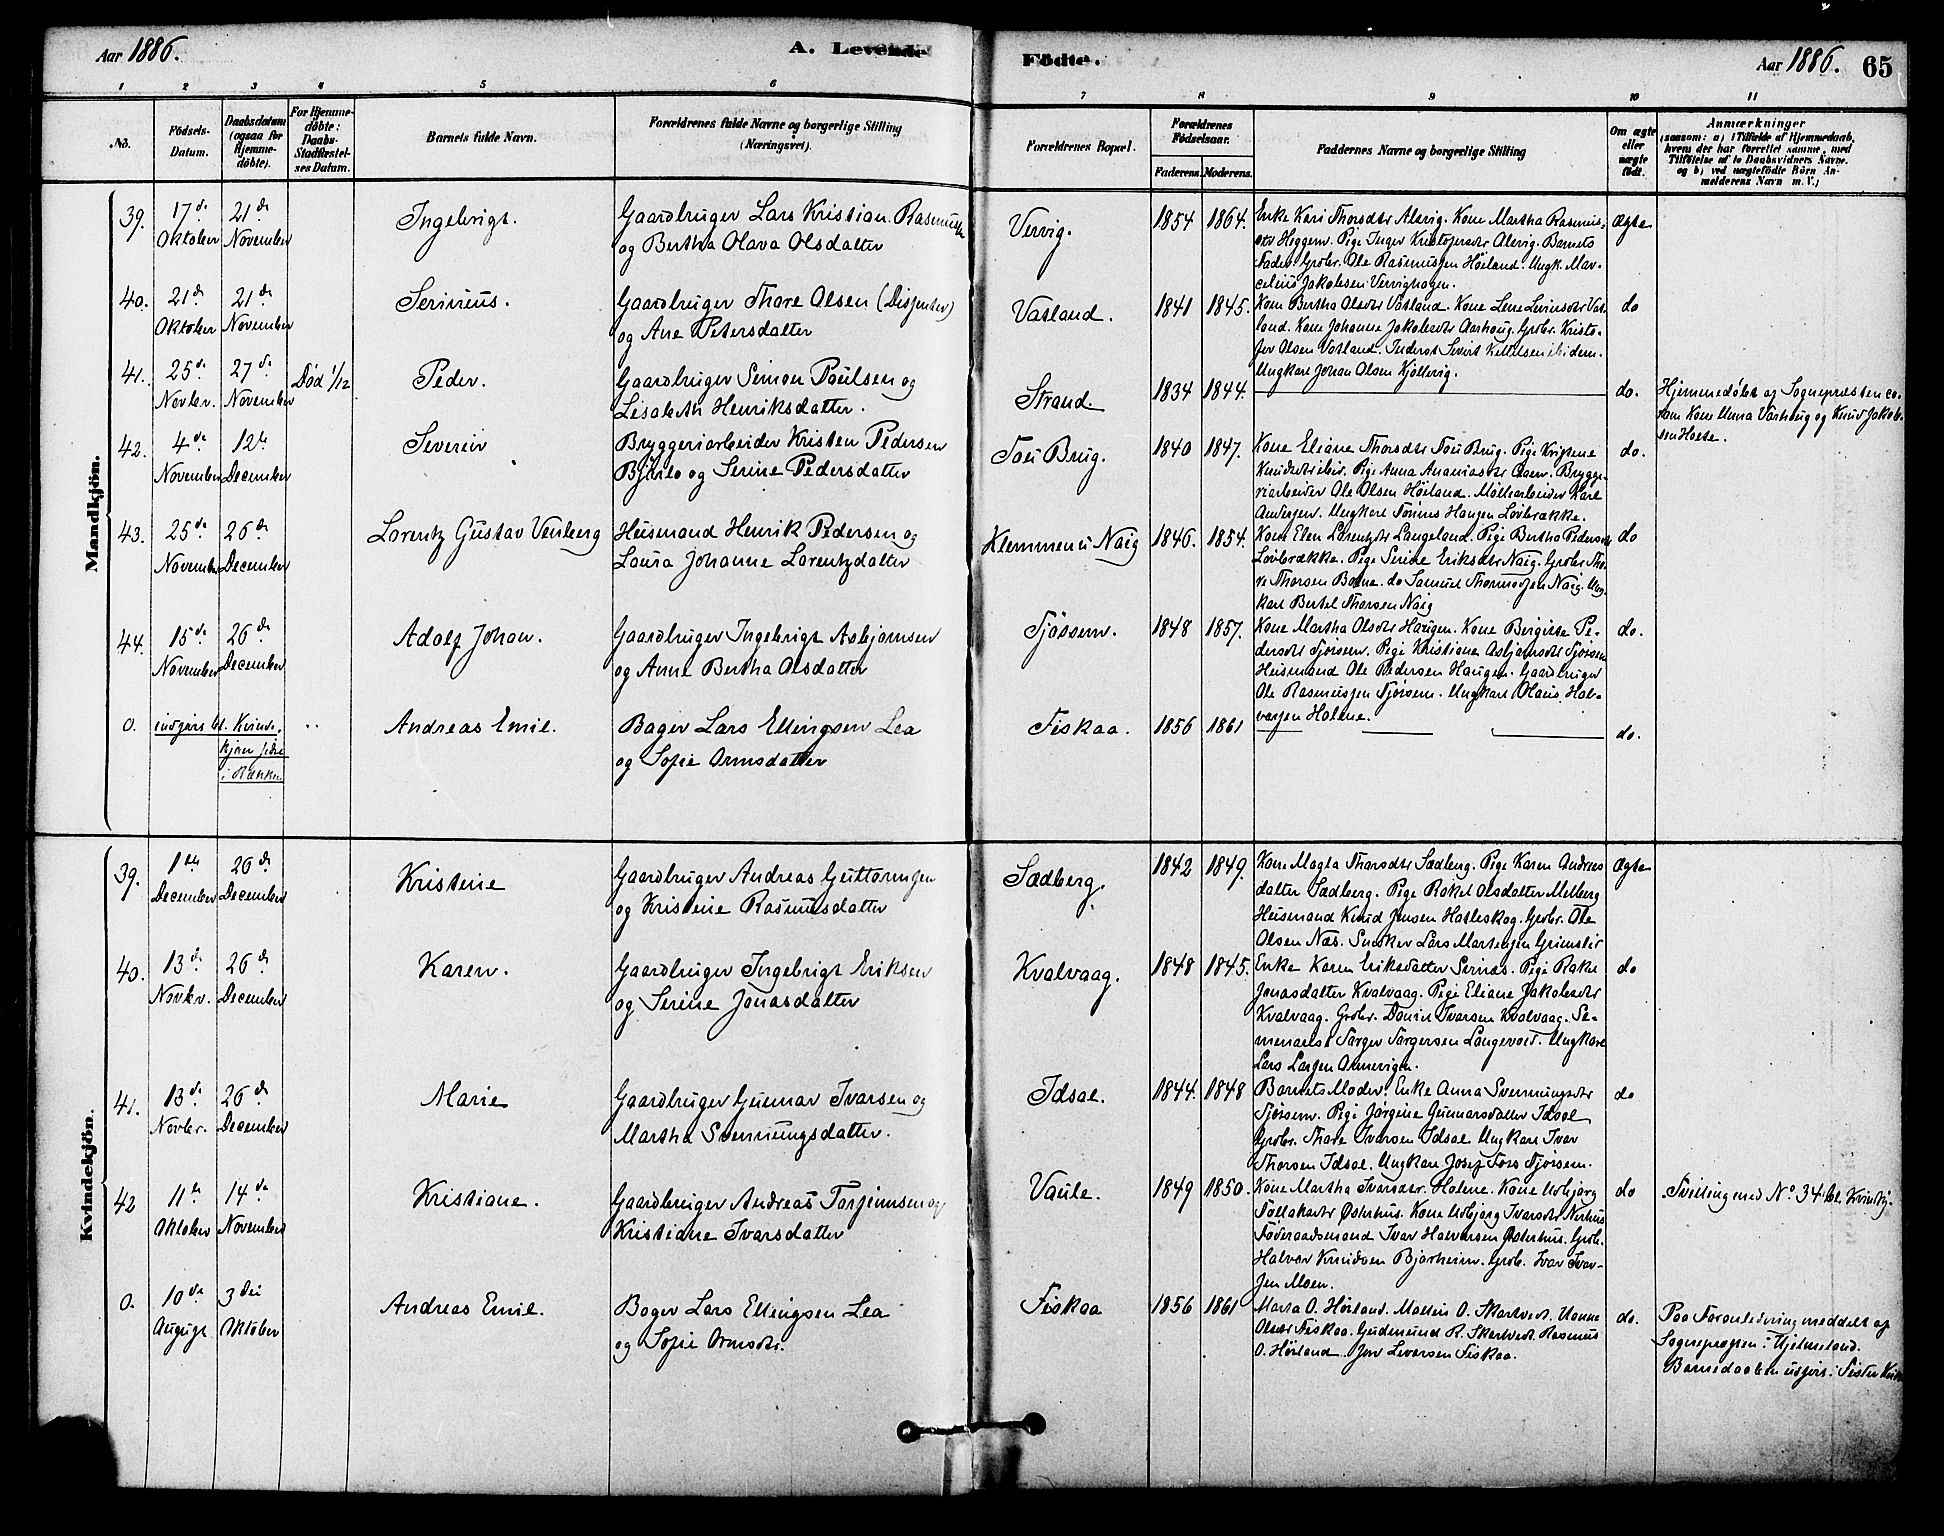 Aar 1886.
A. Levende Födte.
Aar 1886. 65
1 2 3 4 5 6 7 8 9 10 11
No.
Födsels-
Datum.
Daabsdatum
(ogsaa for
Hjemme-
döbte).
For Hjemme-
döbte:
Daabs-
Stadfæstel-
ses Datum.
Barnets fulde Navn.
Forældrenes fulde Navne og borgerlige Stilling
(Næringsvei).
Forældrenes Bopæl.
Forældrenes
Födselsaar.
Faderens. Moderens.
Faddernes Navne og borgerlige Stilling
Om ægte
eller
uægte
födt.
Anmærkninger
(saasom: a) i Tilfælde af Hjemmedaab,
hvem der har forrettet samme, med
Tilföielse af to Daabsvidners Navne.
og b) ved uægtefödte Börn An-
melderens Navn m. V.)
Mandkjön.
39. 17de Oktober 21de November
Ingebrigt.
Gaardbruger Lars Kristian Rasmussen
og Bertha Olava Olsdatter
Vervig. 1854 1864.
Enke Kari Thorsdtr Alsvig. Kone Martha Rasmus-
dtr Heggem. Pige Inger Kristofersdtr Alsvig. Barnets
Fader. Grdbr. Ole Rasmussen Höiland. Ungk. Mar-
celius Jakobsen Vervighagen.
Ægte
40. 21de Oktober 21de November
Serinius.
Gaardbruger Thore Olsen (Dissenter)
og Ane Petersdatter
Vatland. 1841 1845.
Kone Bertha Olsdtr Vatland. Kone Lene Larsdtr Vat-
land. Kone Johanne Jakobsdtr Aarhoug. Grdbr. Kristo-
fer Olsen Vatland. Inderst Sivert Kittilsen ibidem.
Ungkarl Johan Olsen Kjölevig.
do
41. 25de Novbr. 27de November Död 1/12
Peder.
Gaardbruger Simon Poulsen og
Lisabeth Henriksdatter.
Strand. 1834 1844.
do.
Hjemmedöbt af Sognepræsten co-
ram Kone Anna Vatshoug og Knud Jakob-
sen Holte.
42. 4de November 12te December
Severin
Bryggeriarbeider Kristen Pedersen
Bjelle og Serine Pedersdatter
Tou Brug. 1840 1847.
Kone Eliane Thorsdtr Tou Brug. Pige Kristine
Knudsdtr ibid. Pige Anna Ananiasdtr Dam. Brygge-
riarbeider Ole Olsen Höiland. Möllearbeider Karl
Andersen. Ungkarl Tönnes Hansen Lövbrække.
do.
43. 25de November 26de December
Lorentz Gustav Venberg
Huusmand Henrik Pedersen og
Laura Johanne Lorentzdatter
Klemmen u Naig 1846. 1854.
Kone Elen Lorentzdtr Langeland. Pige Bertha Pedersdtr
Lövbrække. Pige Serine Eriksdtr Naig. Grdbr Tho-
re Thorsen Botne. do Samuel Thomassen Naig. Ung-
karl Bertel Thorsen Naig
do
44. 15de November 26de December
Adolf Johan.
Gaardbruger Ingebrigt Asbjörnsen
og Anne Bertha Olsdatter
Tjössem. 1848 1857.
Kone Martha Olsdtr Haugen. Kone Bergitte Pe-
dersdtr Tjössem. Pige Kristiane Asbjörnsdtr Tjössem
Huusmand Ole Pedersen Haugen. Gaardbruger
Ole Rasmussen Tjössem. Ungkarl Olaus Hal-
vorsen Holene.
do.
0. indföres bl. Kvinde-
kjön sidst
i Rækken
Andreas Emil.
Bager Lars Ellingsen Lea
og Sofie Ormsdatter
Fiskaa. 1856 1861
do.
Kvindekjön.
39. 1ste December 26de December
Kristine
Gaardbruger Andreas Guttormsen
og Kristine Rasmusdatter
Sædberg. 1842 1849.
Kone Magla Thorsdtr Sædberg. Pige Karen Andreas
datter Sædberg. Pige Rakel Olsdatter Melberg
Huusmand Knud Jensen Hatleskog. Grdbr. Ole
Olsen Næs. Snekker Lars Martensen Grimslid
Ægte
40. 13de Novbr. 26de December
Karen.
Gaardbruger Ingebrigt Eriksen
og Serine Jonasdatter
Kvalvaag. 1848 1845.
Enke Karen Eriksdatter Sernæs. Pige Rakel
Jonasdatter Kvalvaag. Pige Eliane Jakobsdtr
Kvalvaag. Grdbr. Daniel Ivarsen Kvalvaag. Se-
menarist Torger Torgersen Langevold. Ungkarl
Lars Larsen Ommevigen.
do
41. 13de Novbr. 26de December
Marie
Gaardbruger Gunnar Ivarsen og
Martha Svenningsdatter.
Idsal. 1844. 1848
Barnets Moder. Enke Anna Svenningsdtr
Tjössem. Pige Jörgine Gunnarsdatter Idsal
Grdbr. Thore Ivarsen Idsal Ungkarl Ivar
Thorsen Idsal. Ungkarl Josef Tors Tjössem.
do
42 11te Oktober 14de November
Kristiane.
Gaardbruger Andreas Torjiusen og
Kristiane Ivarsdatter
Vaule. 1849 1850.
Kone Martha Ivarsdtr. Holene. Kone Asbjörg
Tollaksdtr Østerhus. Kone Asbjörg Ivarsdtr Nerhus
Föderaadsmand Ivar Halvorsen Østerhus. Grdb.
Halvor Knudsen Bjørheim. Grdb. Ivar Ivar-
sen Moen.
do
Tvilling med No 34 bl. Kvindkj.
0. 10de August 3die Oktober
Andreas Emil.
Bager Lars Ellingsen Lea
og Sofie Ormsdtr.
Fiskaa 1856 1861
Marta O. Höiland. Mallin O. Skartveit. Hanna
Olsdtr Fiskaa. Gudmund R. Skartveit. Rasmus
O. Höiland. Jon Levorsen Fiskaa.
do.
Paa Foranledning meddelt af
Sognepresten i Hjelmeland.
Barnedaaben udförtes i Fister Kirke